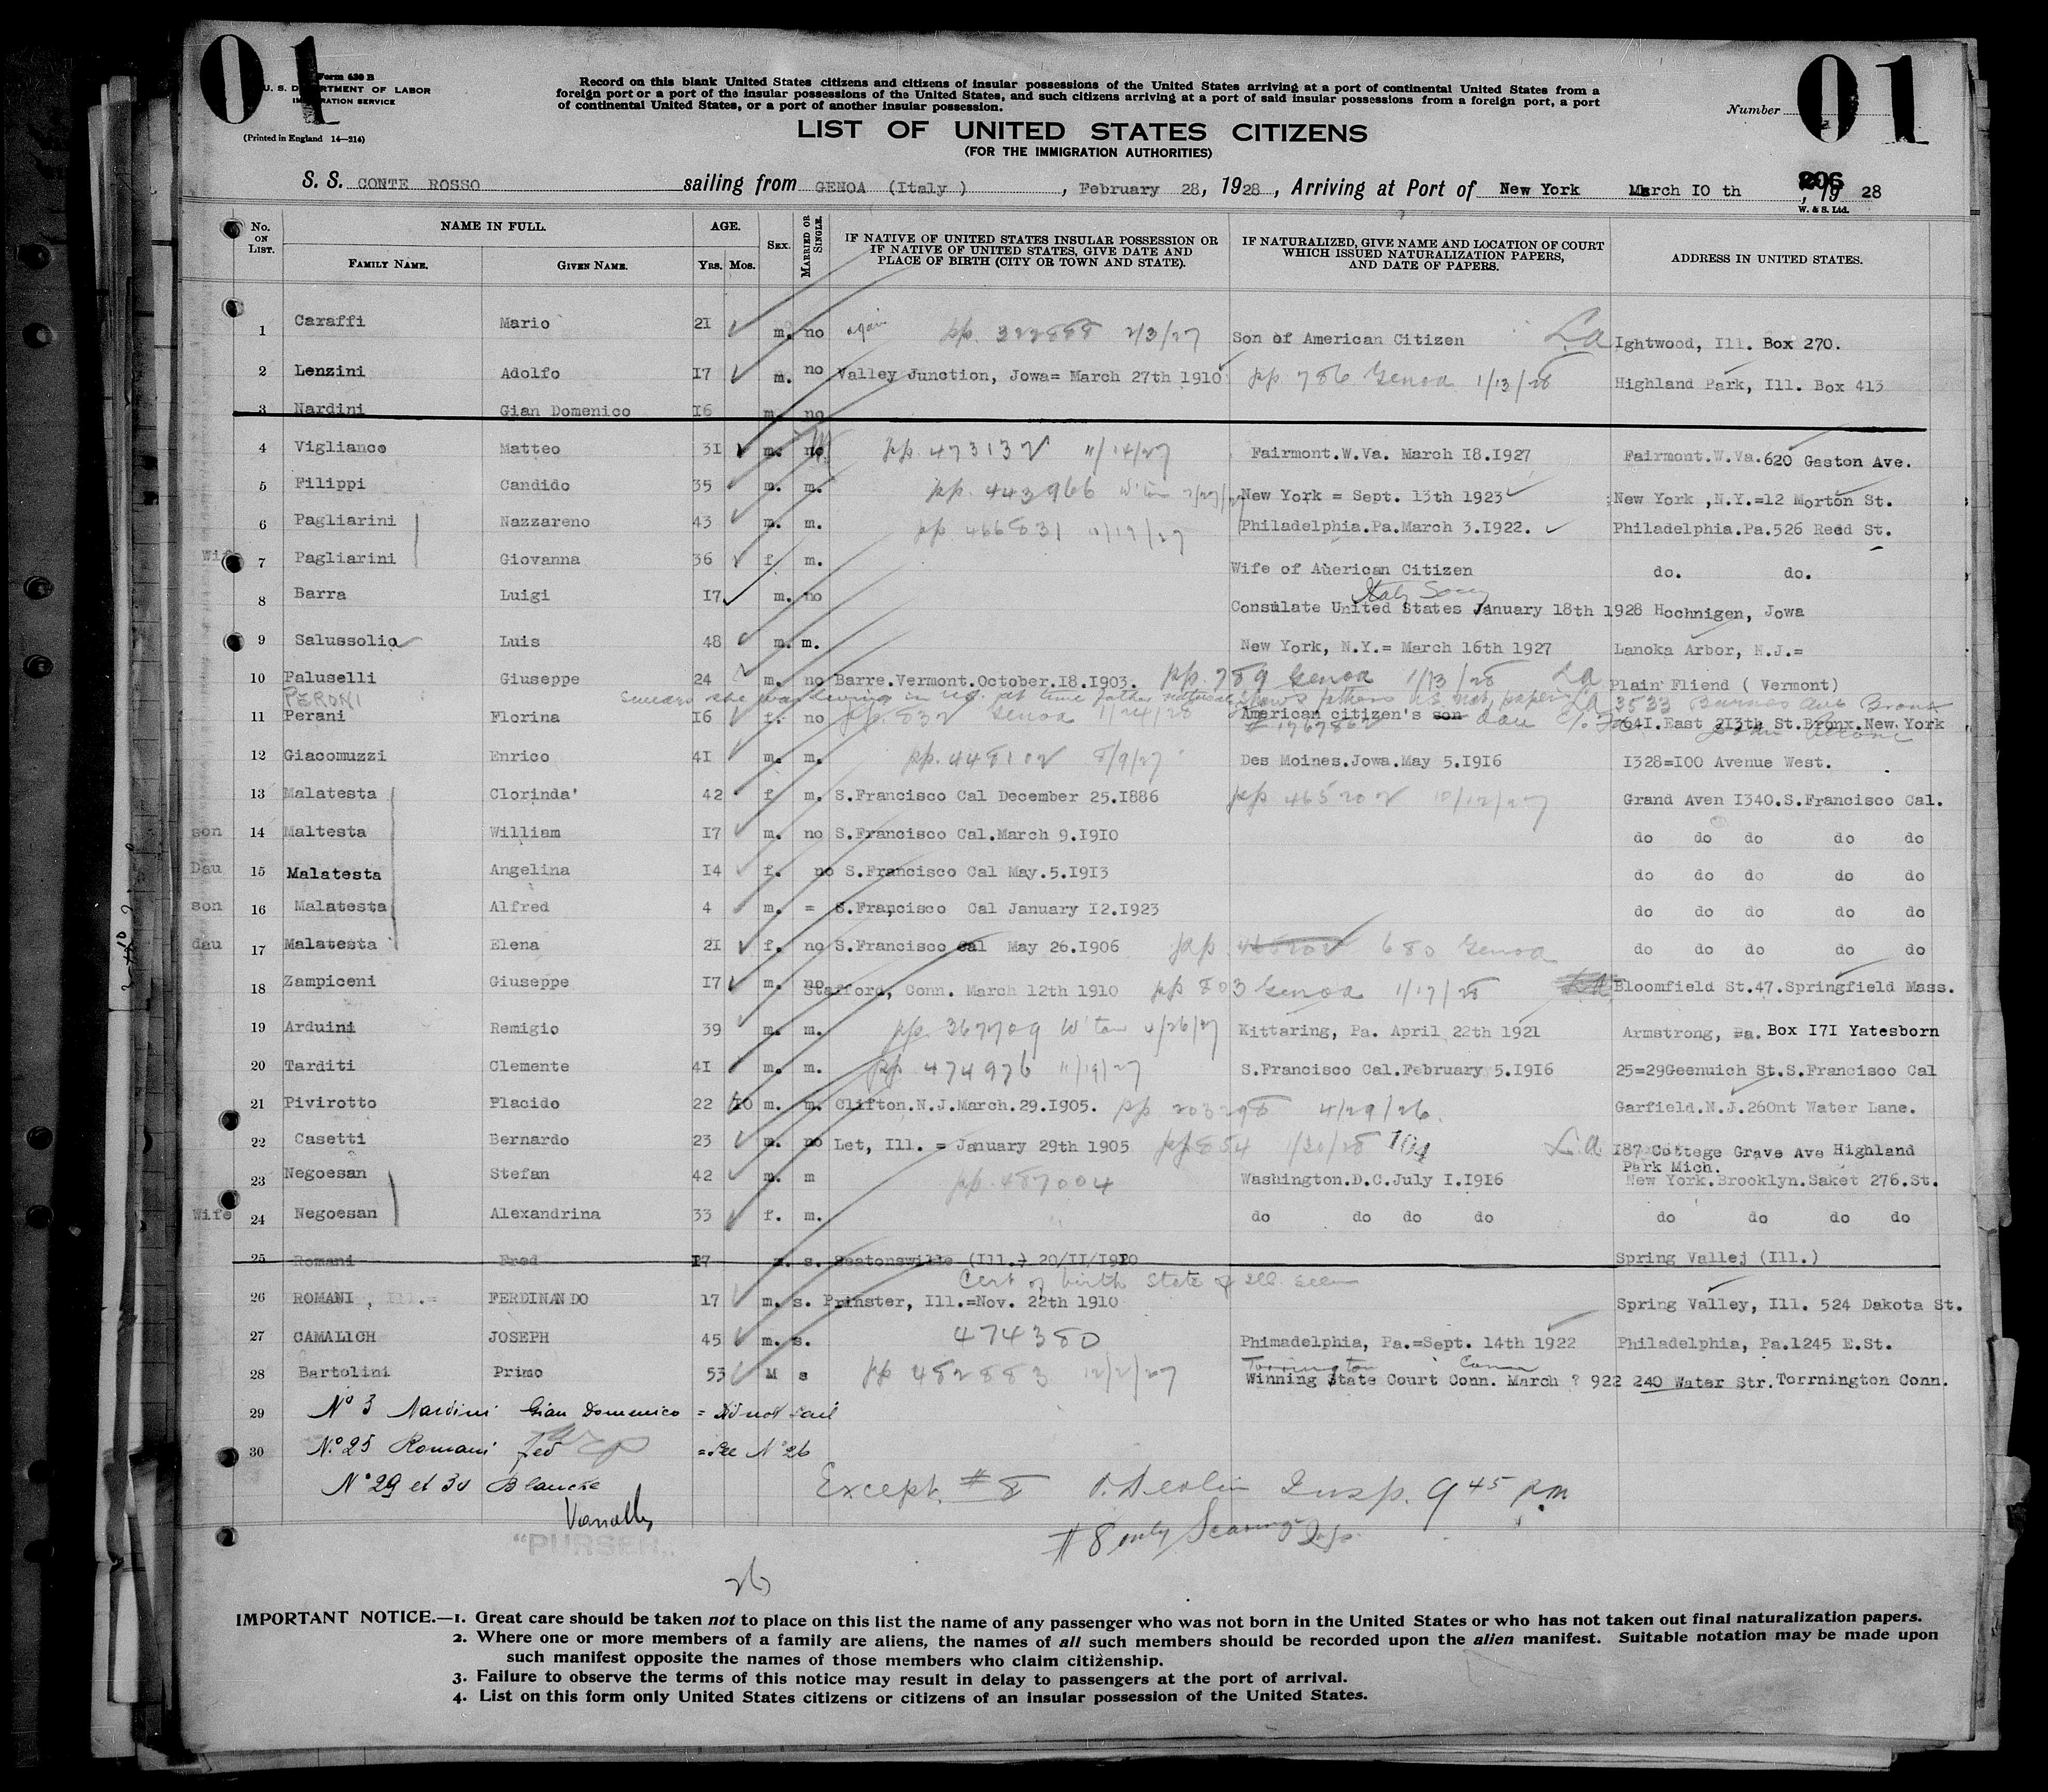 01
01
Form 630 B
U. S. DEPARTMENT OF LABOR
IMMIGRATION SERVICE
(Printed in England 14—214)
Record on this blank United States citizens and citizens of insular possessions of the United States arriving at a port of continental United States from a
foreign port or a port of the insular possessions of the United States, and such citizens arriving at a port of said insular possessions from a foreign port, a port
of continental United States, or a port of another insular possession.
Number
LIST OF UNITED STATES CITIZENS
(FOR THE IMMIGRATION AUTHORITIES)
S. S. CONTE ROSSO sailing from GENOA (Italy ) , February 28, 1928, Arriving at Port of New York March 10 th , 19 28
206
W. & S. Ltd.
No. ON LIST. NAME IN FULL. AGE. SEX. MARRIED OR SINGLE. IF NATIVE OF UNITED STATES INSULAR POSSESSION OR IF NATIVE OF UNITED STATES, GIVE DATE AND PLACE OF BIRTH (CITY OR TOWN AND STATE). IF NATURALIZED, GIVE NAME AND LOCATION OF COURT WHICH ISSUED NATURALIZATION PAPERS, AND DATE OF PAPERS. ADDRESS IN UNITED STATES.
FAMILY NAME. GIVEN NAME. YRS. MOS.
1 Caraffi Mario 21 m. no again pp. 322888 2/3/27 Son of American Citizen L.a Ightwood, Ill. Box 270.
2 Lenzini Adolfo 17 m. no Valley Junction, Jowa= March 27th 1910 pp 786 Genoa 1/13/28 Highland Park, Ill. Box 413
3 Nardini Gian Domenico 16 m. no
4 Viglianco Matteo 31 m. no pp. 473132 11/14/27 Fairmont.W.Va. March 18.1927 Fairmont.W.Va.620 Gaston Ave.
5 Filippi Candido 35 m. m. pp. 443966 W'ton New York = Sept. 13th 1923 New York ,N.Y.=12 Morton St.
6 Pagliarini Nazzareno 43 m. m. pp. 466831 Philadelphia.Pa.March 3.1922. Philadelphia.Pa.526 Reed St.
Wife 7 Pagliarini Giovanna 36 f m. Wife of Auerican Citizen do. do.
8 Barra Luigi 17 m. no Consulate United States January 18th 1928 Hochnigen, Jowa
9 Salussolia Luis 48 m. m. New York, N.Y.= March 16th 1927 Lanoka Arbor, N.J.=
10 Paluselli Giuseppe 24 m. no Barre.Vermont.October.18.1903. pp. 789 Genoa 1/13/28 La Plain Fliend ( Vermont)
PERONI swears she was living in U.S. at time father naturalized shows fathers U.S. nat. paper La 3533 Barnes Ave Bronx
11 Perani Florina 16 f. no pp. 832 Genoa 1/24/28 American citizen's son dau c/o 641.East 213th St.Bronx.New York
# 1767862
12 Giacomuzzi Enrico 41 m. m. pp. 448102 8/9/27 Des Moines.Jowa.May 5.1916 1328=100 Avenue West.
13 Malatesta Clorinda' 42 f m. S.Francisco Cal December 25.1886 pp 465202 10/12/27 Grand Aven 1340.S.Francisco Cal.
son 14 Maltesta William 17 m. no S.Francisco Cal.March 9.1910 do do do do do
Dau 15 Malatesta Angelina 14 f. no S.Francisco Cal May.5.1913 do do do do do
son 16 Malatesta Alfred 4 m. = S.Francisco Cal January 12.1923 do do do do do
dau 17 Malatesta Elena 21 f. no S.Francisco Cal May 26.1906 pp. 465202 680 Genoa do do do do do
18 Zampiceni Giuseppe 17 m. no Stafford, Conn. March 12th 1910 pp 803 Genoa 1/17/28 Bloomfield St.47.Springfield Mass.
19 Arduini Remigio 39 m. m. pp. 367709 W'ton 4/26/27 Kittaring, Pa. April 22th 1921 Armstrong, Pa. Box 171 Yatesborn
20 Tarditi Clemente 41 m. m. pp 474976 11/19/27 S.Francisco Cal.February 5.1916 25=29Geenuich St.S.Francisco Cal
21 Pivirotto Placido 22 10 m. m. Clifton.N.J.March.29.1905. pp 203298 4/29/26. Garfield.N.J.260nt Water Lane.
22 Casetti Bernardo 23 m. no Let, Ill. = January 29th 1905 pp 854 1/30/28 104 L.a. 187 Cottege Grave Ave Highland
Park Mich.
23 Negoesan Stefan 42 m. m pp. 487004 Washington.D.C.July 1.1916 New York.Brooklyn.Saket 276.St.
Wife 24 Negoesan Alexandrina 33 f. m. do do do do do do do do
25 Romani Fred 17 m. s. Seatonswille (Ill.) 20/11/1910 Spring Vallej (Ill.)
Cert of birth State of Ill. seen
26 ROMANI , Ill.= FERDINANDO 17 m. s. Prinster, Ill.=Nov. 22th 1910 Spring Valley, Ill. 524 Dakota St.
27 CAMALICH JOSEPH 45 m. s. 474380 Phimadelphia, Pa.=Sept. 14th 1922 Philadelphia, Pa.1245 E.St.
Torrington Conn
28 Bartolini Primo 53 M s pp 482883 12/2/27 Winning State Court Conn. March ? 922 240 Water Str. Torrnington Conn.
29 No 3 Nardini Gian Domenico = Did not sail
30 No 25 Romani Fed = See No 26
No 29 et 30 Blanche
Except #8 Insp. 9 45 pm
#8 only
"PURSER"
26
IMPORTANT NOTICE.—1. Great care should be taken not to place on this list the name of any passenger who was not born in the United States or who has not taken out final naturalization papers.
2. Where one or more members of a family are aliens, the names of all such members should be recorded upon the alien manifest. Suitable notation may be made upon
such manifest opposite the names of those members who claim citizenship.
3. Failure to observe the terms of this notice may result in delay to passengers at the port of arrival.
4. List on this form only United States citizens or citizens of an insular possession of the United States.